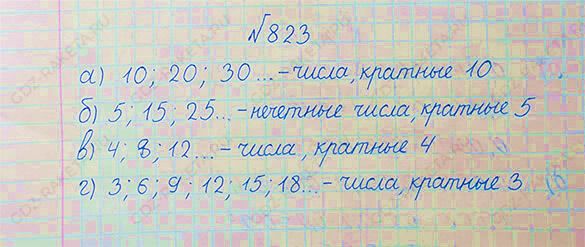 №823
а) 10; 20; 30... – числа, кратные 10
б) 5; 15; 25... – нечетные числа, кратные 5
в) 4; 8; 12... – числа, кратные 4
г) 3; 6; 9; 12; 15; 18... – числа, кратные 3